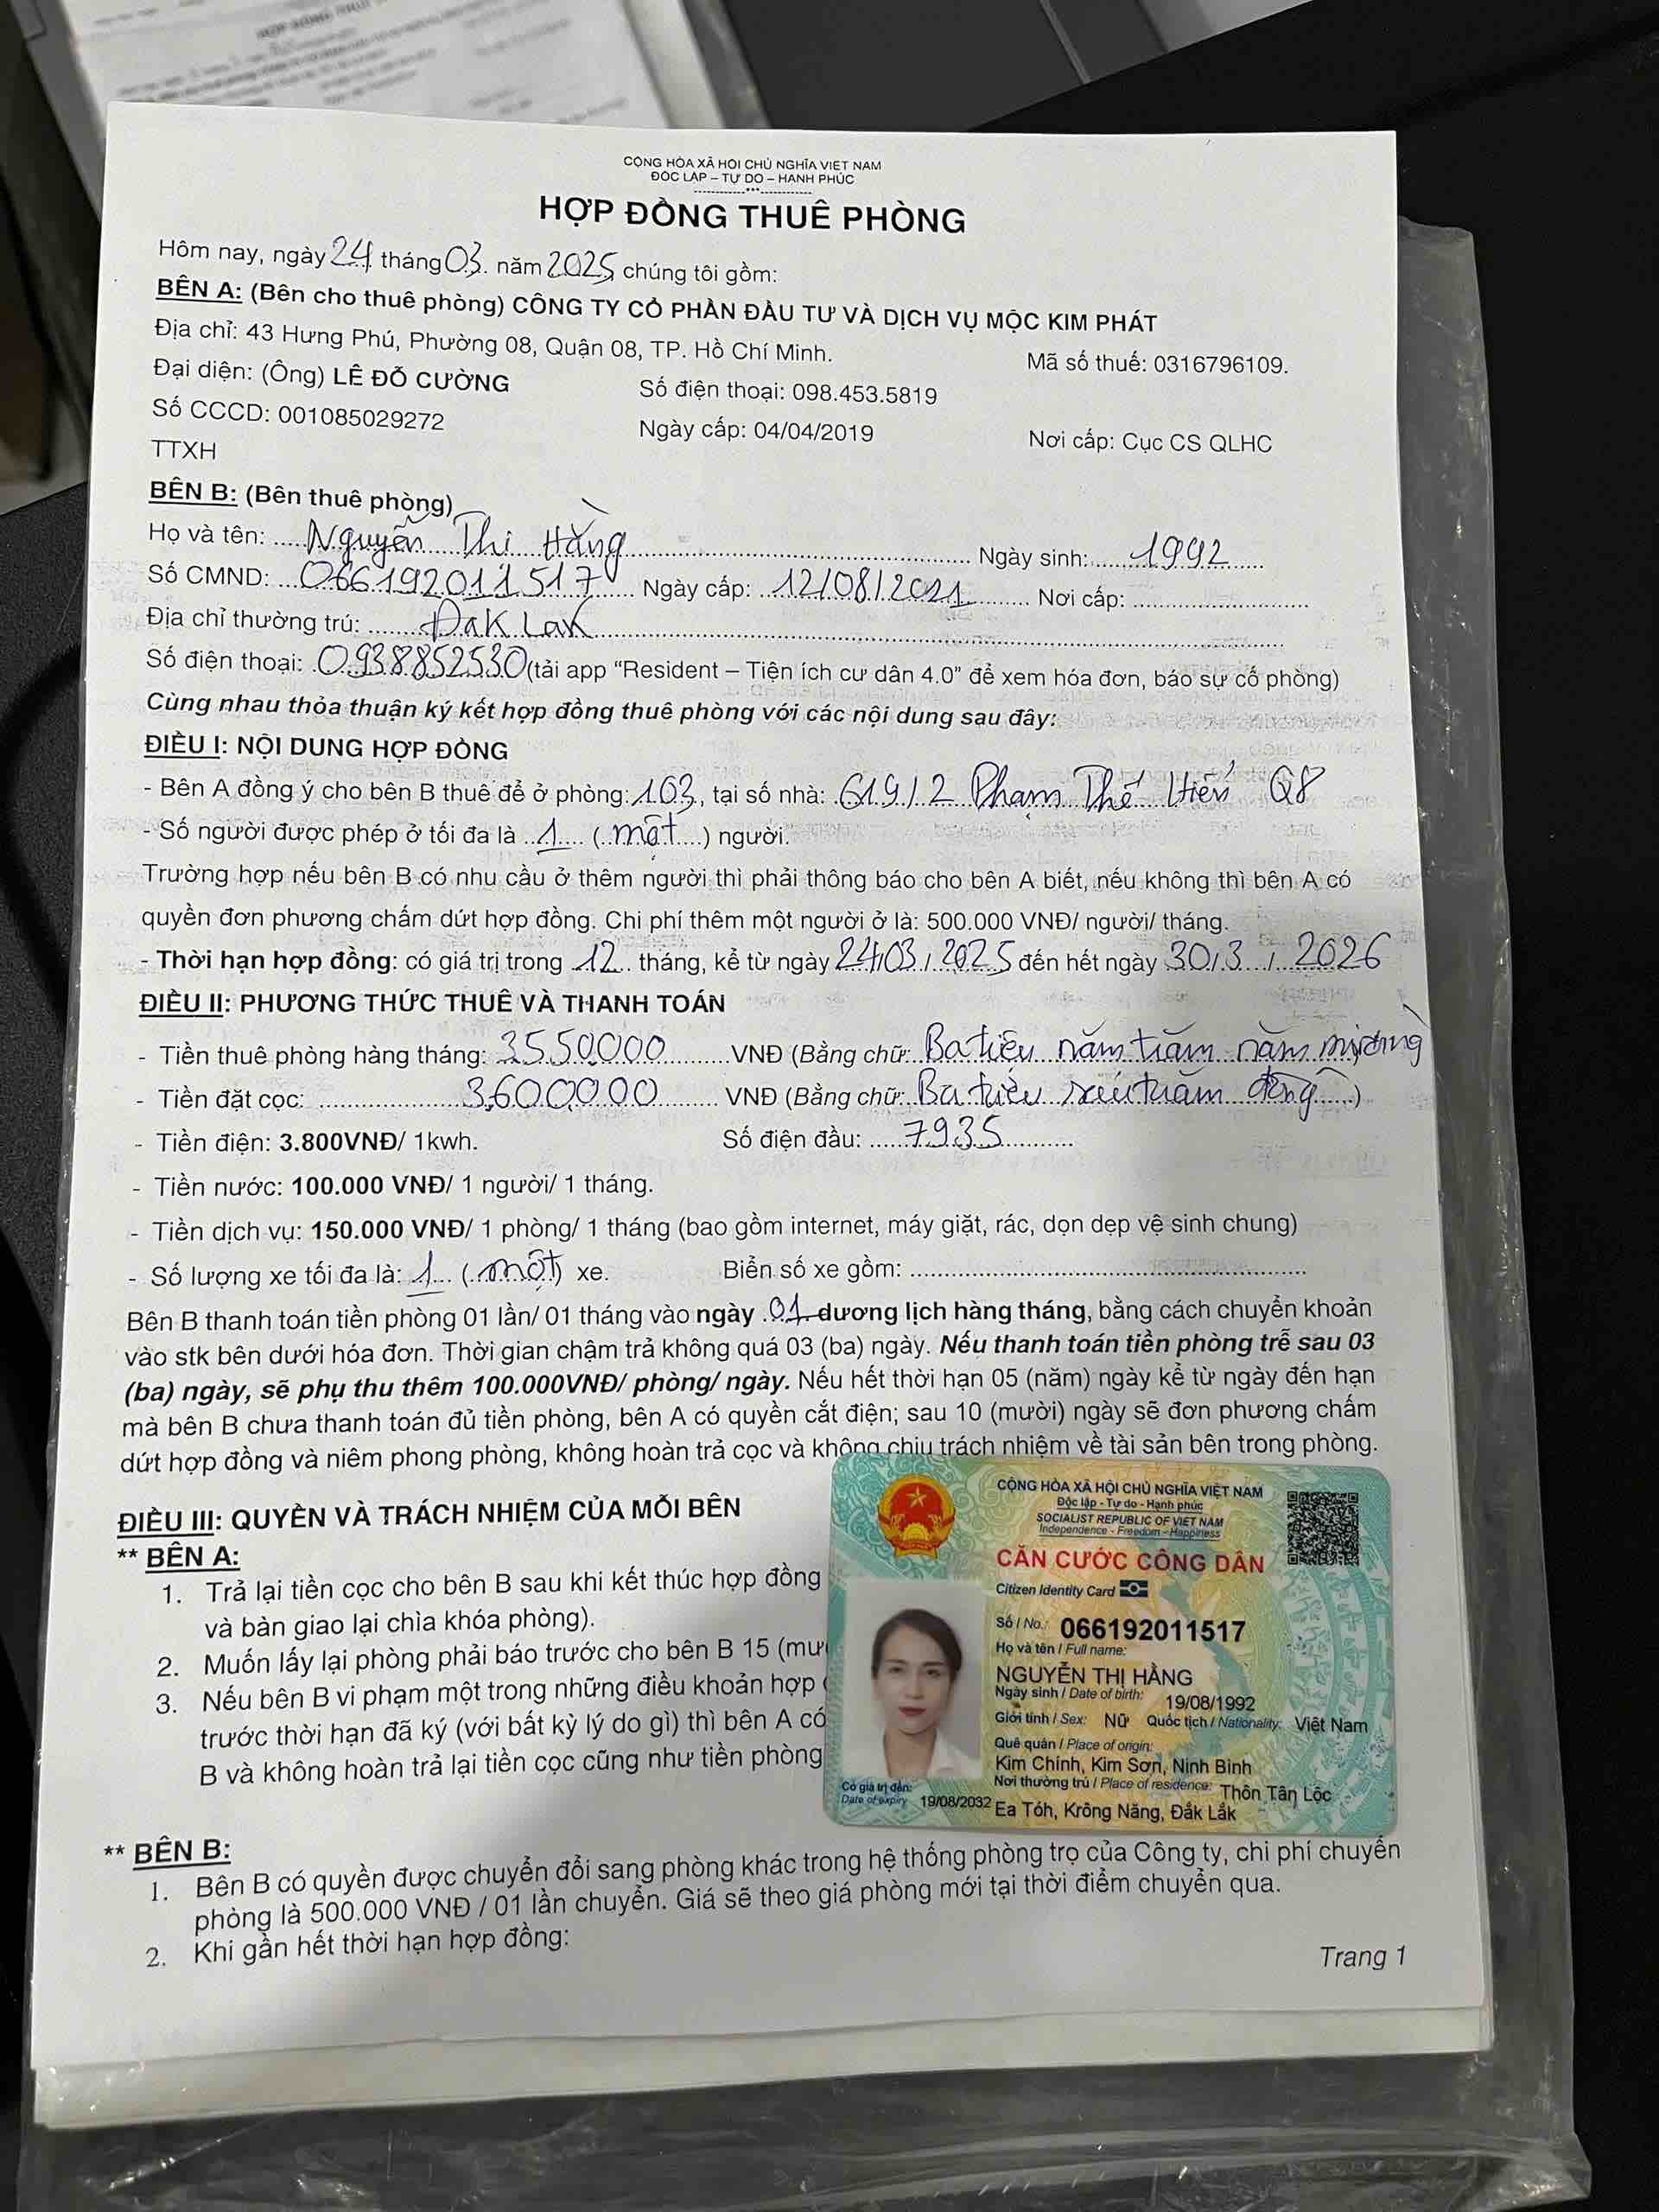 CỘNG HÒA XÃ HỘI CHỦ NGHĨA VIỆT NAM
ĐỘC LẬP – TỰ DO – HẠNH PHÚC
HỢP ĐỒNG THUÊ PHÒNG
Hôm nay, ngày 24 tháng 03. năm 2025 chúng tôi gồm:
BÊN A: (Bên cho thuê phòng) CÔNG TY CỔ PHẦN ĐẦU TƯ VÀ DỊCH VỤ MỘC KIM PHÁT
Địa chỉ: 43 Hưng Phú, Phường 08, Quận 08, TP. Hồ Chí Minh. Mã số thuế: 0316796109.
Đại diện: (Ông) LÊ ĐỖ CƯỜNG Số điện thoại: 098.453.5819
Số CCCD: 001085029272 Ngày cấp: 04/04/2019 Nơi cấp: Cục CS QLHC
TTXH
BÊN B: (Bên thuê phòng)
Họ và tên: Nguyễn Thi Hằng Ngày sinh: 1992
Số CMND: 066192011517 Ngày cấp: 12/08/2021 Nơi cấp:
Địa chỉ thường trú: Đak Lak
Số điện thoại: 0938852530 (tải app “Resident – Tiện ích cư dân 4.0” để xem hóa đơn, báo sự cố phòng)
Cùng nhau thỏa thuận ký kết hợp đồng thuê phòng với các nội dung sau đây:
ĐIỀU I: NỘI DUNG HỢP ĐỒNG
- Bên A đồng ý cho bên B thuê để ở phòng: 103, tại số nhà: 619/2 Phạm Thế Hiển Q8
- Số người được phép ở tối đa là 1 (một) người.
Trường hợp nếu bên B có nhu cầu ở thêm người thì phải thông báo cho bên A biết, nếu không thì bên A có
quyền đơn phương chấm dứt hợp đồng. Chi phí thêm một người ở là: 500.000 VNĐ/ người/ tháng.
- Thời hạn hợp đồng: có giá trị trong 12 tháng, kể từ ngày 24/03/2025 đến hết ngày 30/3/2026
ĐIỀU II: PHƯƠNG THỨC THUÊ VÀ THANH TOÁN
- Tiền thuê phòng hàng tháng: 3550000 VNĐ (Bằng chữ: Ba triệu năm trăm năm mươi
- Tiền đặt cọc: 3,600,000 VNĐ (Bằng chữ: Ba triệu sáu trăm đồng)
- Tiền điện: 3.800VNĐ/ 1kwh. Số điện đầu: 7935
- Tiền nước: 100.000 VNĐ/ 1 người/ 1 tháng.
- Tiền dịch vụ: 150.000 VNĐ/ 1 phòng/ 1 tháng (bao gồm internet, máy giặt, rác, dọn dẹp vệ sinh chung)
- Số lượng xe tối đa là: 1 (một) xe. Biển số xe gồm:
Bên B thanh toán tiền phòng 01 lần/ 01 tháng vào ngày 01 dương lịch hàng tháng, bằng cách chuyển khoản
vào stk bên dưới hóa đơn. Thời gian chậm trả không quá 03 (ba) ngày. Nếu thanh toán tiền phòng trễ sau 03
(ba) ngày, sẽ phụ thu thêm 100.000VNĐ/ phòng/ ngày. Nếu hết thời hạn 05 (năm) ngày kể từ ngày đến hạn
mà bên B chưa thanh toán đủ tiền phòng, bên A có quyền cắt điện; sau 10 (mười) ngày sẽ đơn phương chấm
dứt hợp đồng và niêm phong phòng, không hoàn trả cọc và không chịu trách nhiệm về tài sản bên trong phòng.
ĐIỀU III: QUYỀN VÀ TRÁCH NHIỆM CỦA MỖI BÊN
** BÊN A:
1. Trả lại tiền cọc cho bên B sau khi kết thúc hợp đồng
và bàn giao lại chìa khóa phòng).
2. Muốn lấy lại phòng phải báo trước cho bên B 15 (mư
3. Nếu bên B vi phạm một trong những điều khoản hợp
trước thời hạn đã ký (với bất kỳ lý do gì) thì bên A có
B và không hoàn trả lại tiền cọc cũng như tiền phòng
CỘNG HÒA XÃ HỘI CHỦ NGHĨA VIỆT NAM
Độc lập - Tự do - Hạnh phúc
SOCIALIST REPUBLIC OF VIET NAM
Independence - Freedom - Happiness
CĂN CƯỚC CÔNG DÂN
Citizen Identity Card
Số / No.: 066192011517
Họ và tên / Full name:
NGUYỄN THỊ HẰNG
Ngày sinh / Date of birth: 19/08/1992
Giới tính / Sex: Nữ Quốc tịch / Nationality: Việt Nam
Quê quán / Place of origin:
Kim Chính, Kim Sơn, Ninh Bình
Nơi thường trú / Place of residence: Thôn Tân Lộc
Ea Tóh, Krông Năng, Đắk Lắk
Có giá trị đến:
Date of expiry 19/08/2032
** BÊN B:
1. Bên B có quyền được chuyển đổi sang phòng khác trong hệ thống phòng trọ của Công ty, chi phí chuyển
phòng là 500.000 VNĐ / 01 lần chuyển. Giá sẽ theo giá phòng mới tại thời điểm chuyển qua.
2. Khi gần hết thời hạn hợp đồng:
Trang 1